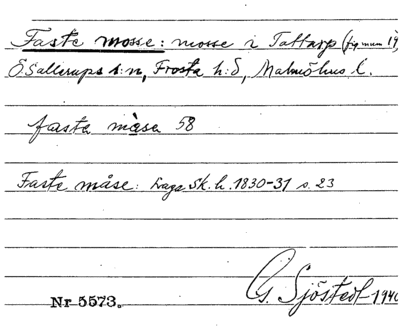 Faste mosse: mosse i Tattarp (fig num 19)
Ö. Sallerups s:n, Frosta h:d, Malmöhus l.
faste måse 58
Faste måse: Laga Sk. h. 1830-31 s. 23
Nr 5573.
G. Sjöstedt 1940